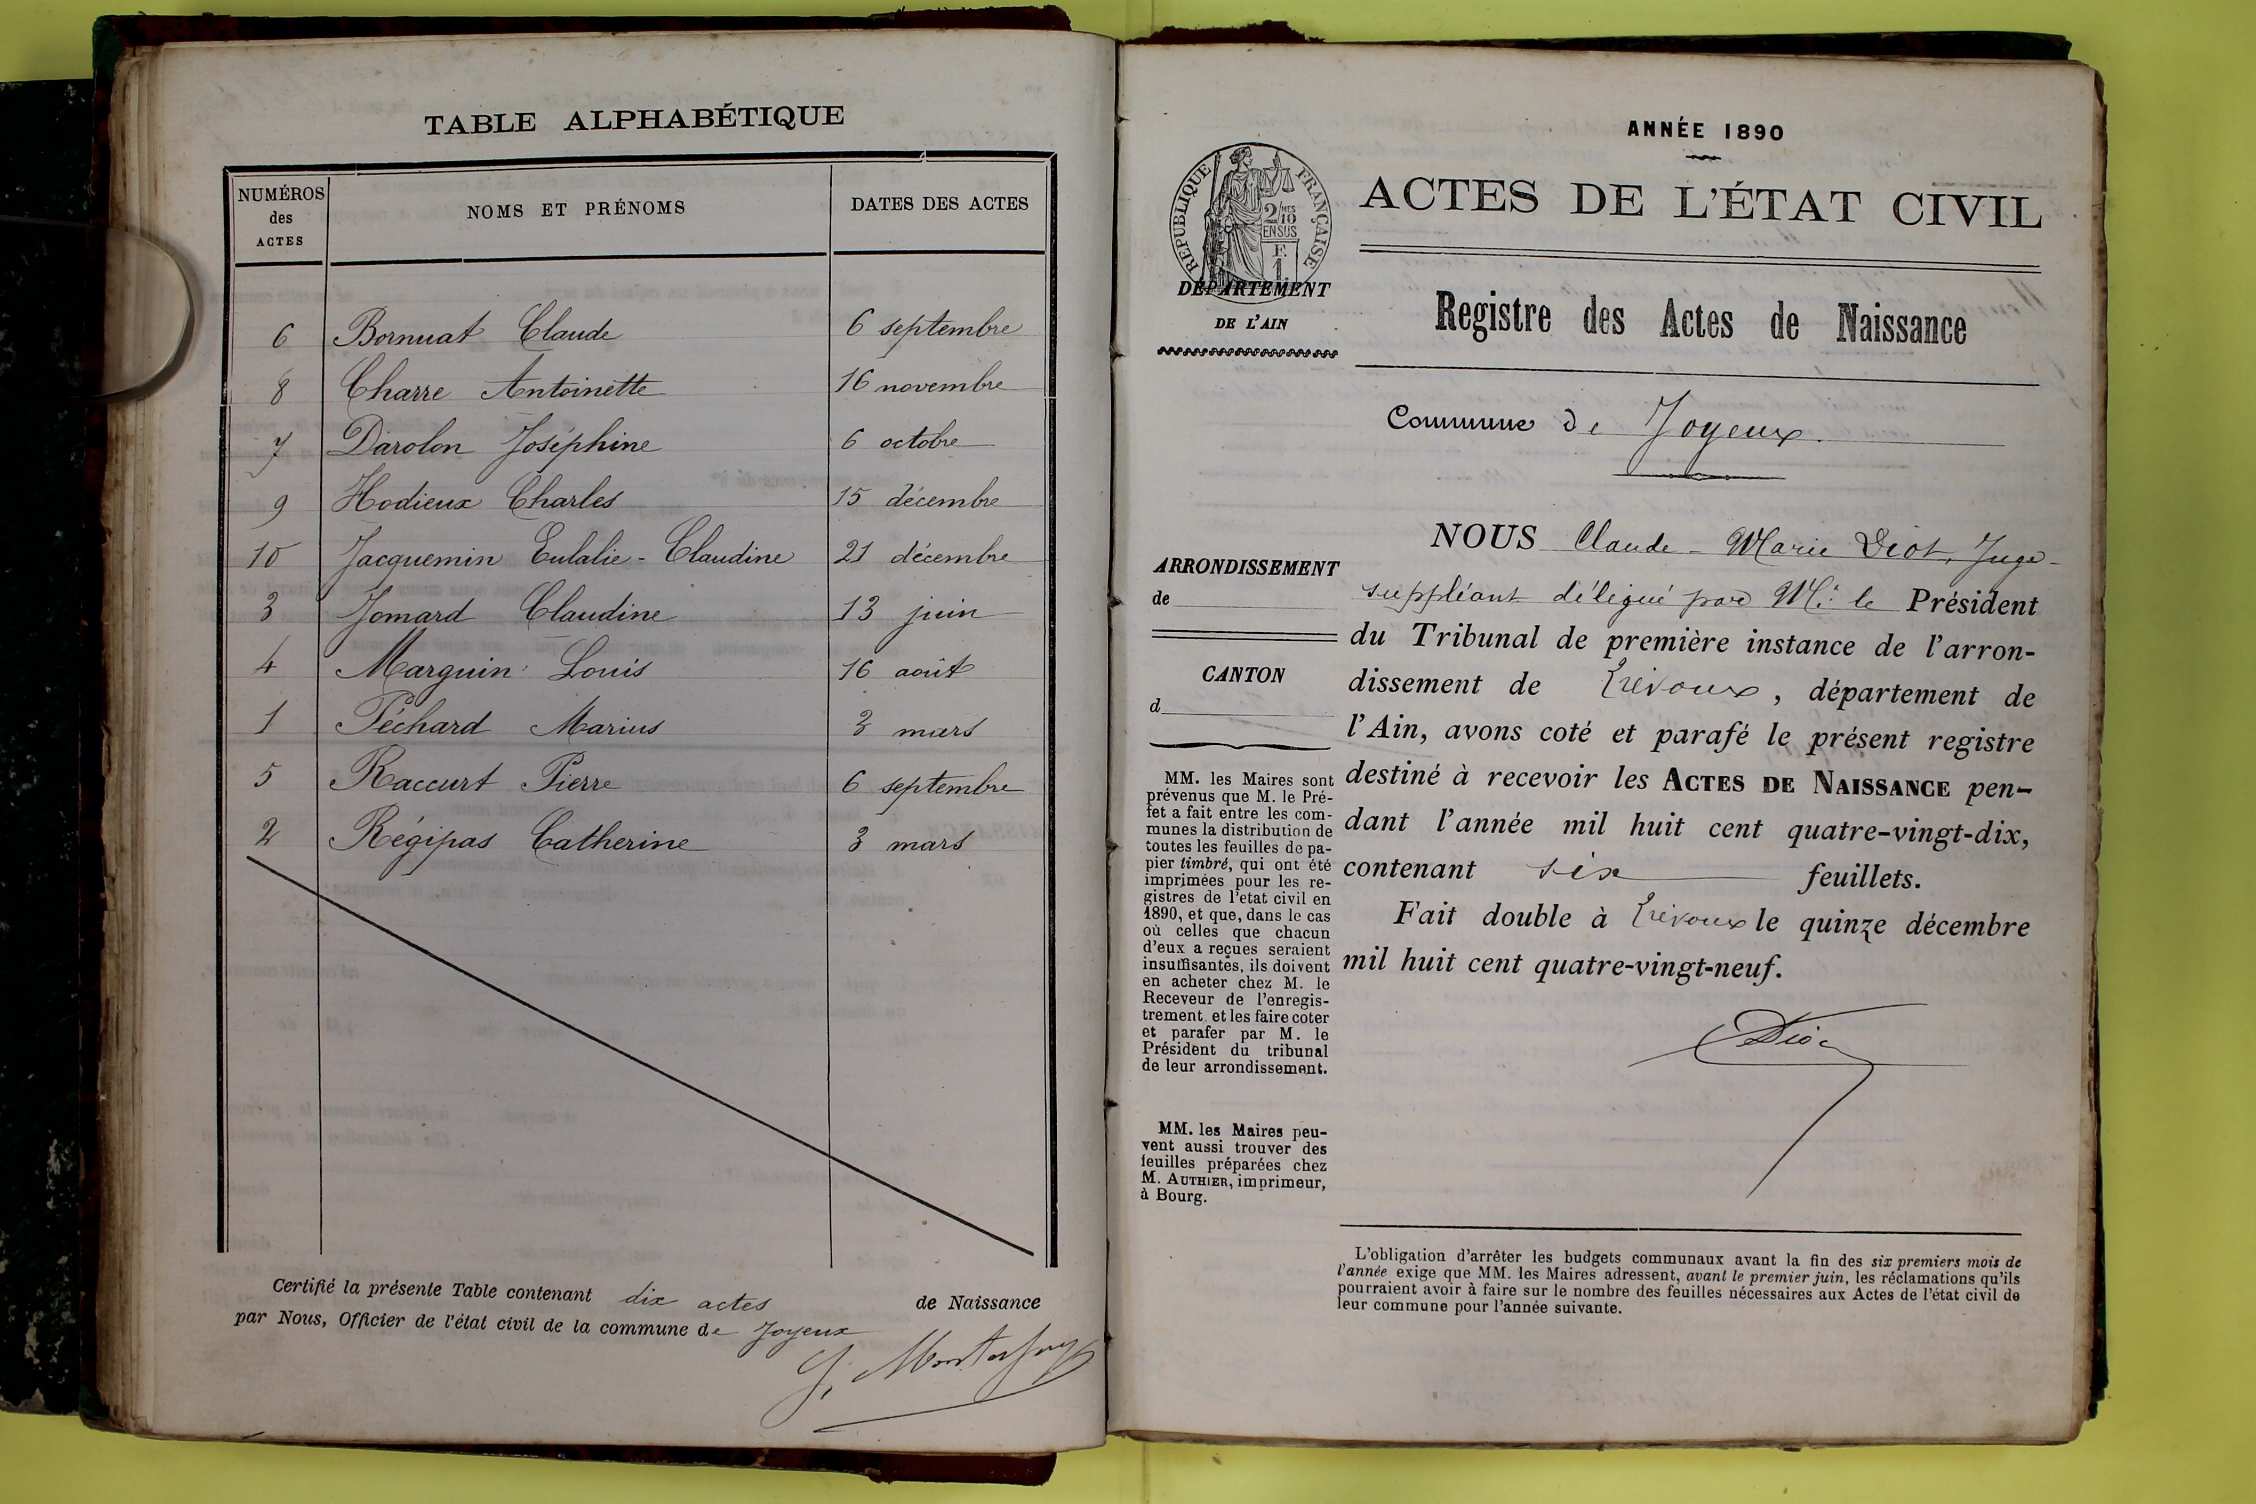 TABLE ALPHABÉTIQUE
NUMÉROS des ACTES NOMS ET PRÉNOMS DATES DES ACTES
6 Bornuat Claude 6 septembre
8 Charre Antoinette 16 novembre
7 Darolon Joséphine 6 octobre
9 Hodieux Charles 15 décembre
10 Jacquemin Eulalie - Claudine 21 décembre
3 Jomard Claudine 13 juin
4 Marguin Louis 16 août
1 Péchard Marius 3 mars
5 Raccurt Pierre 6 septembre
2 Régipas Catherine 3 mars
Certifié la présente Table contenant dix actes de Naissance
par Nous, Officier de l'état civil de la commune de Joyeux
ANNÉE 1890
ACTES DE L'ÉTAT CIVIL
RÉPUBLIQUE FRANÇAISE
2/10 MES
EN SUS
F.
1.
DÉPARTEMENT
DE L'AIN
Registre des Actes de Naissance
Commune de Joyeux.
ARRONDISSEMENT
de
CANTON
d
MM. les Maires sont
prévenus que M. le Pré-
fet a fait entre les com-
munes la distribution de
toutes les feuilles de pa-
pier timbré, qui ont été
imprimées pour les re-
gistres de l'etat civil en
1890, et que, dans le cas
où celles que chacun
d'eux a reçues seraient
insuffisantes, ils doivent
en acheter chez M. le
Receveur de l'enregis-
trement et les faire coter
et parafer par M. le
Président du tribunal
de leur arrondissement.
MM. les Maires peu-
vent aussi trouver des
feuilles préparées chez
M. AUTHIER, imprimeur,
à Bourg.
NOUS Claude - Marie Diot, Juge
suppléant délégué par Mr. le Président
du Tribunal de première instance de l'arron-
dissement de Trévoux, département de
l'Ain, avons coté et parafé le présent registre
destiné à recevoir les ACTES DE NAISSANCE pen-
dant l'année mil huit cent quatre-vingt-dix,
contenant six feuillets.
Fait double à Trévoux le quinze décembre
mil huit cent quatre-vingt-neuf.
Diot
L'obligation d'arrêter les budgets communaux avant la fin des six premiers mois de
l'année exige que MM. les Maires adressent, avant le premier juin, les réclamations qu'ils
pourraient avoir à faire sur le nombre des feuilles nécessaires aux Actes de l'état civil de
leur commune pour l'année suivante.